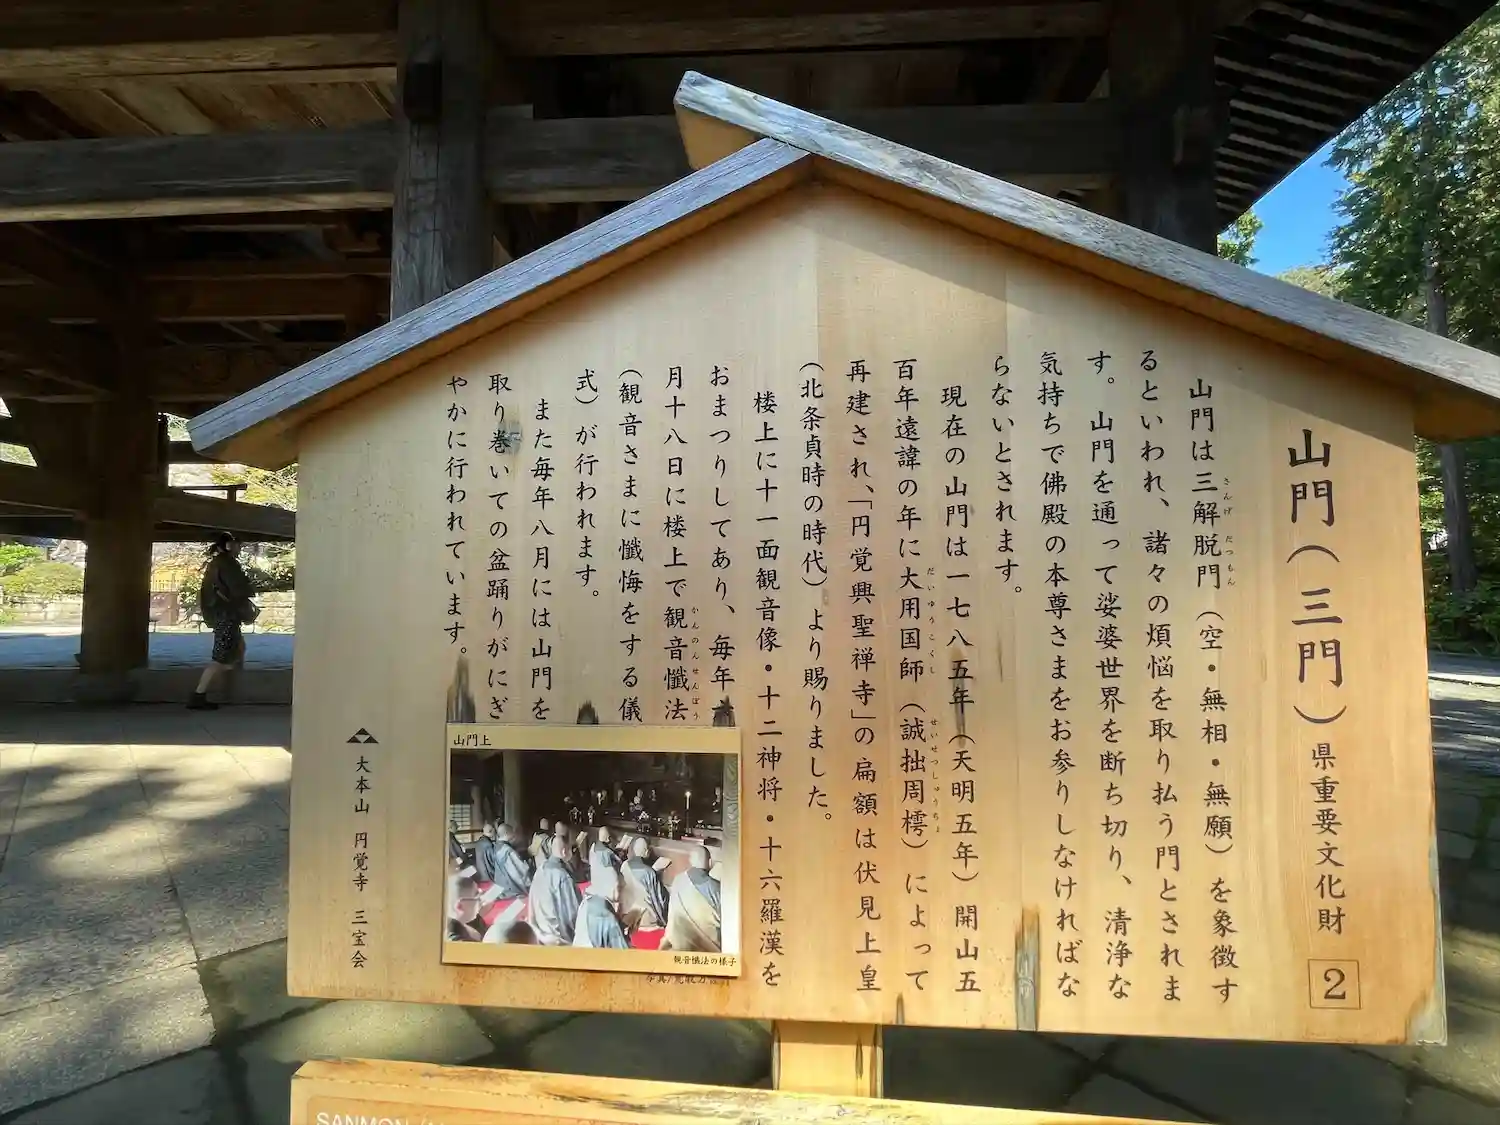 山門（三門）県重要文化財 2
山門は三解脱門（空・無相・無願）を象徴す
さんげだつもん
るといわれ、諸々の煩悩を取り払う門とされま
す。山門を通って娑婆世界を断ち切り、清浄な
気持ちで佛殿の本尊さまをお参りしなければな
らないとされます。
現在の山門は一七八五年（天明五年）開山五
百年遠諱の年に大用国師（誠拙周樗）によって
だいゆうこくし せいせつしゅうちょ
再建され、「円覚興聖禅寺」の扁額は伏見上皇
（北条貞時の時代）より賜りました。
楼上に十一面観音像・十二神将・十六羅漢を
おまつりしてあり、毎年六
月十八日に楼上で観音懺法
かんのんせんぼう
（観音さまに懺悔をする儀
式）が行われます。
また毎年八月には山門を
取り巻いての盆踊りがにぎ
やかに行われています。
山門上
観音懺法の様子
大本山 円覚寺 三宝会
SANMON